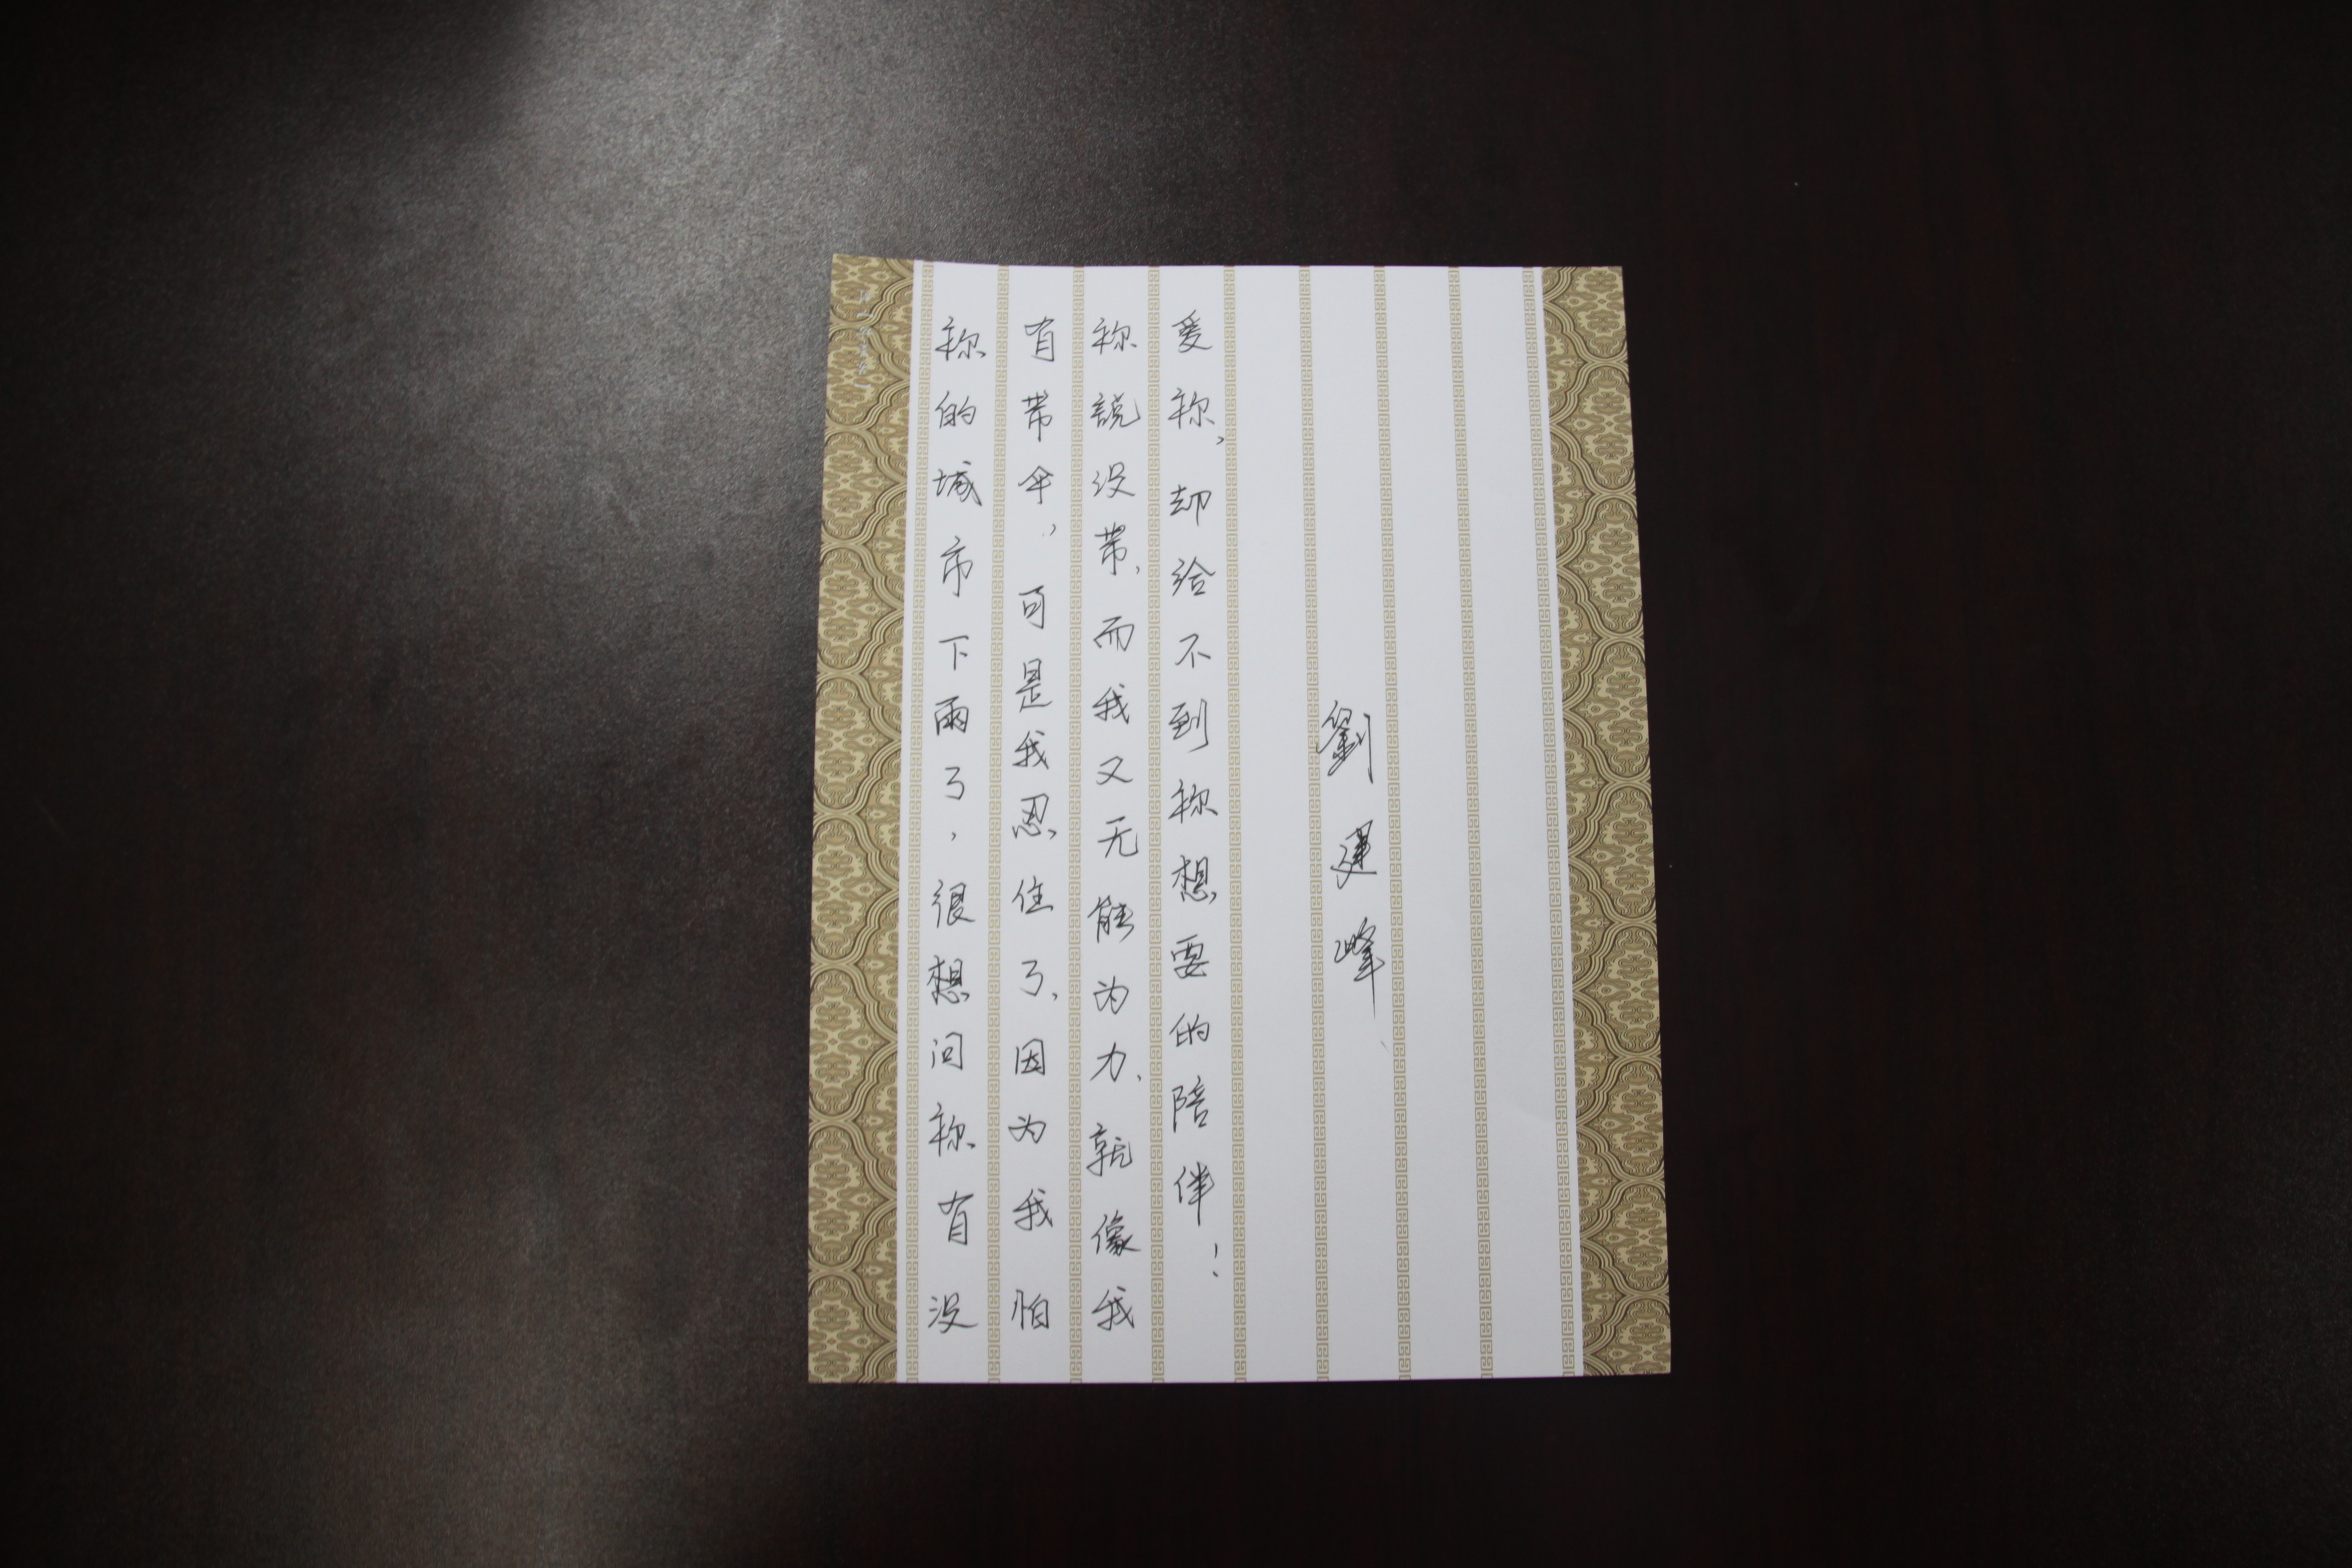 祢的城市下雨了，很想问祢有没
有带伞，可是我忍住了，因为我怕
祢説没带，而我又无能为力，就像我
爱祢，却给不到祢想要的陪伴！
劉建峰